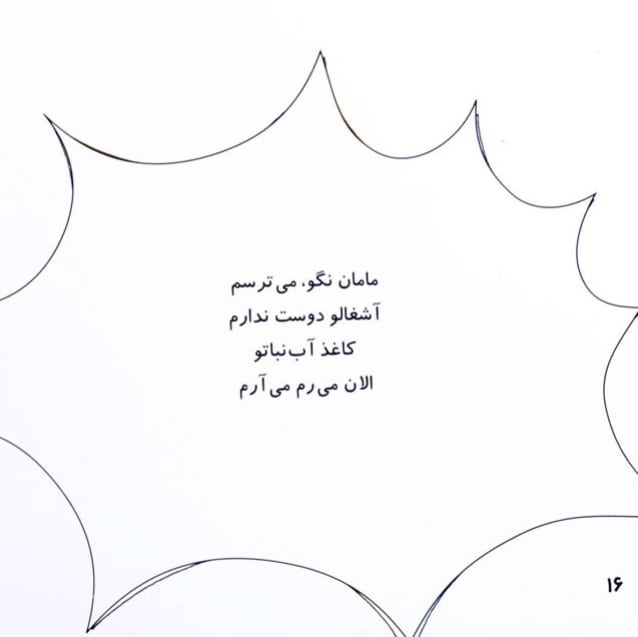 مامان نگو، می‌ترسم
آشغالو دوست ندارم
کاغذ آب‌نباتو
الان می‌رم می‌آرم
۱۶